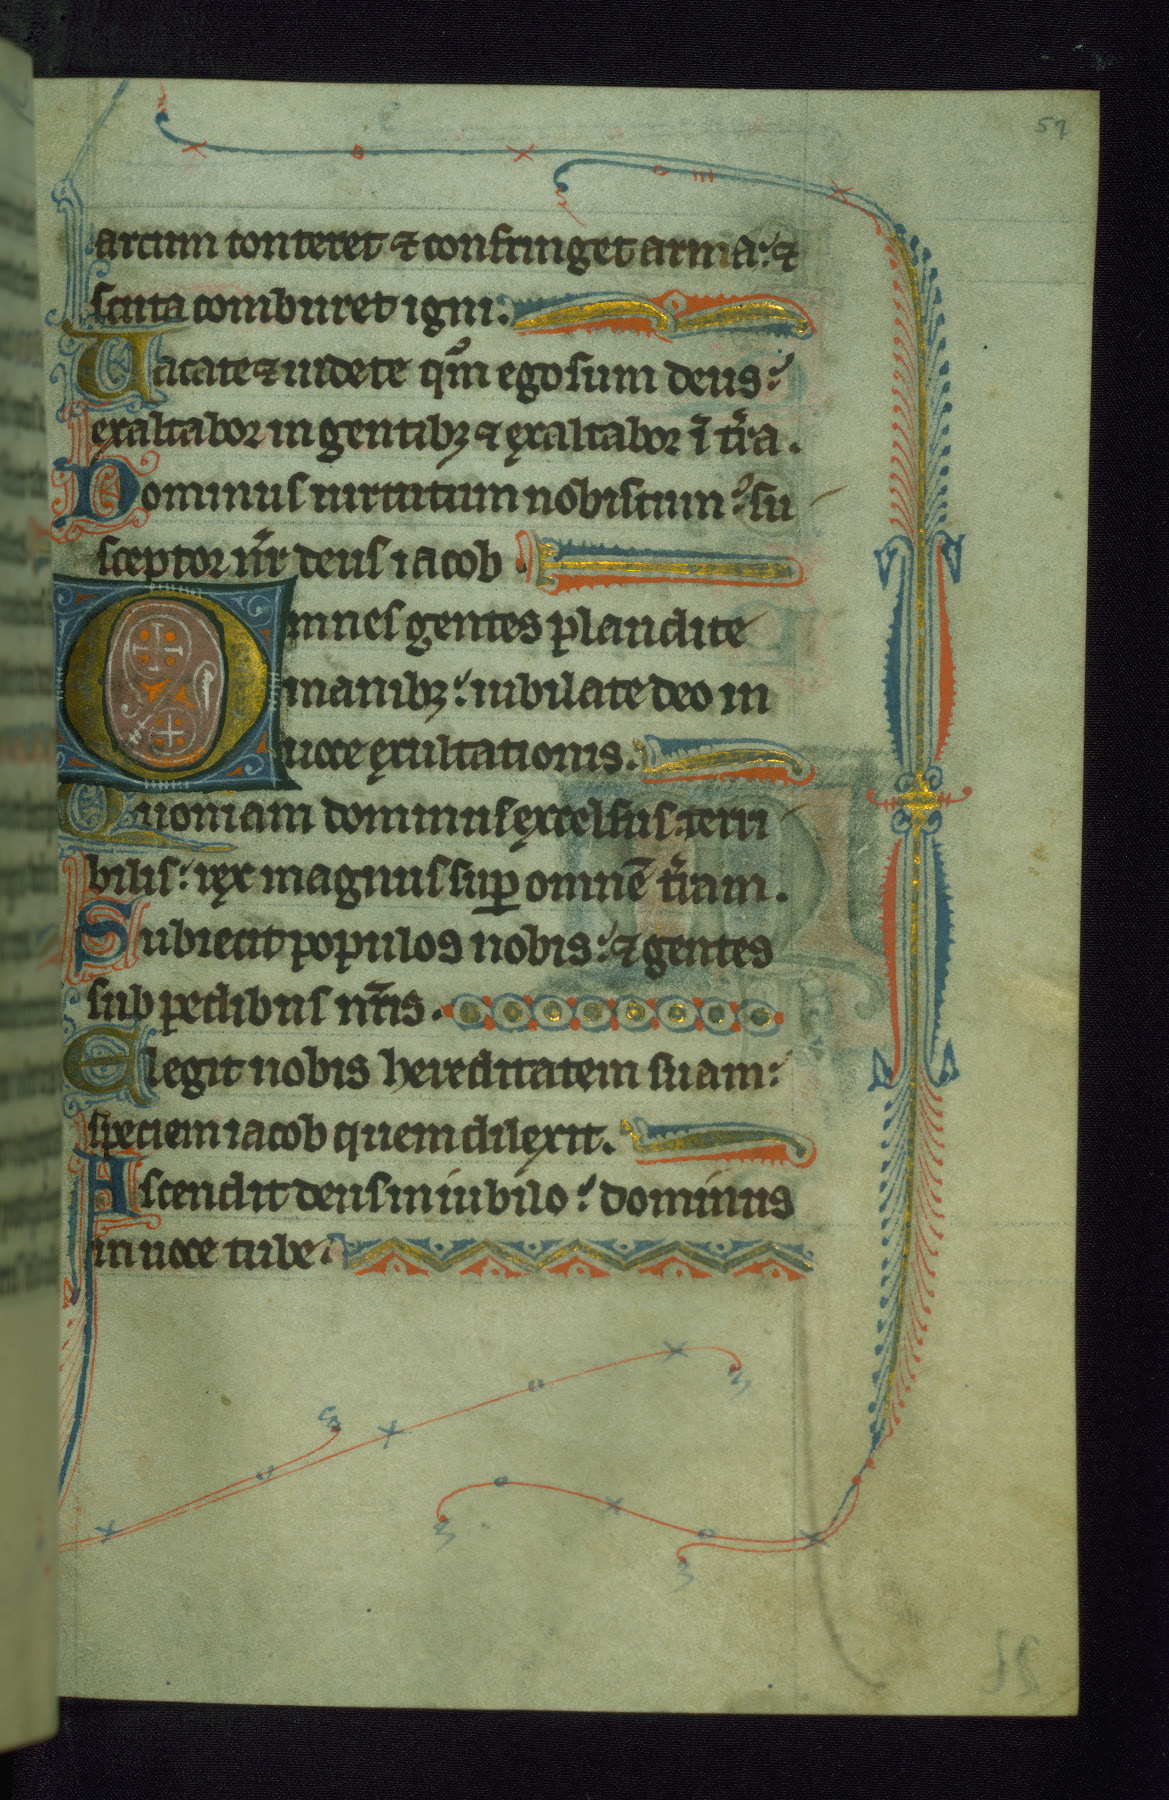 57
arcum conteret ⁊ confringet arma: ⁊
scuta comburet igni.
Uacate ⁊ uidete qm̄ ego sum deus:
exaltabor in gentibꝫ ⁊ exaltabor ī t̄ra.
Dominus uirtutum nobiscum: su
sceptor nr̄ deus iacob.
Omnes gentes plaudite
manibꝫ: iubilate deo in
uoce exultationis.
Quoniam dominus excelsus: terri
bilis: rex magnus suꝑ omnē t̄ram.
Subiecit populos nobis: ⁊ gentes
sub pedibus nr̄is.
Elegit nobis hereditatem suam:
speciem iacob quem dilexit.
Ascendit deus in iubilo: dominus
in uoce tube.